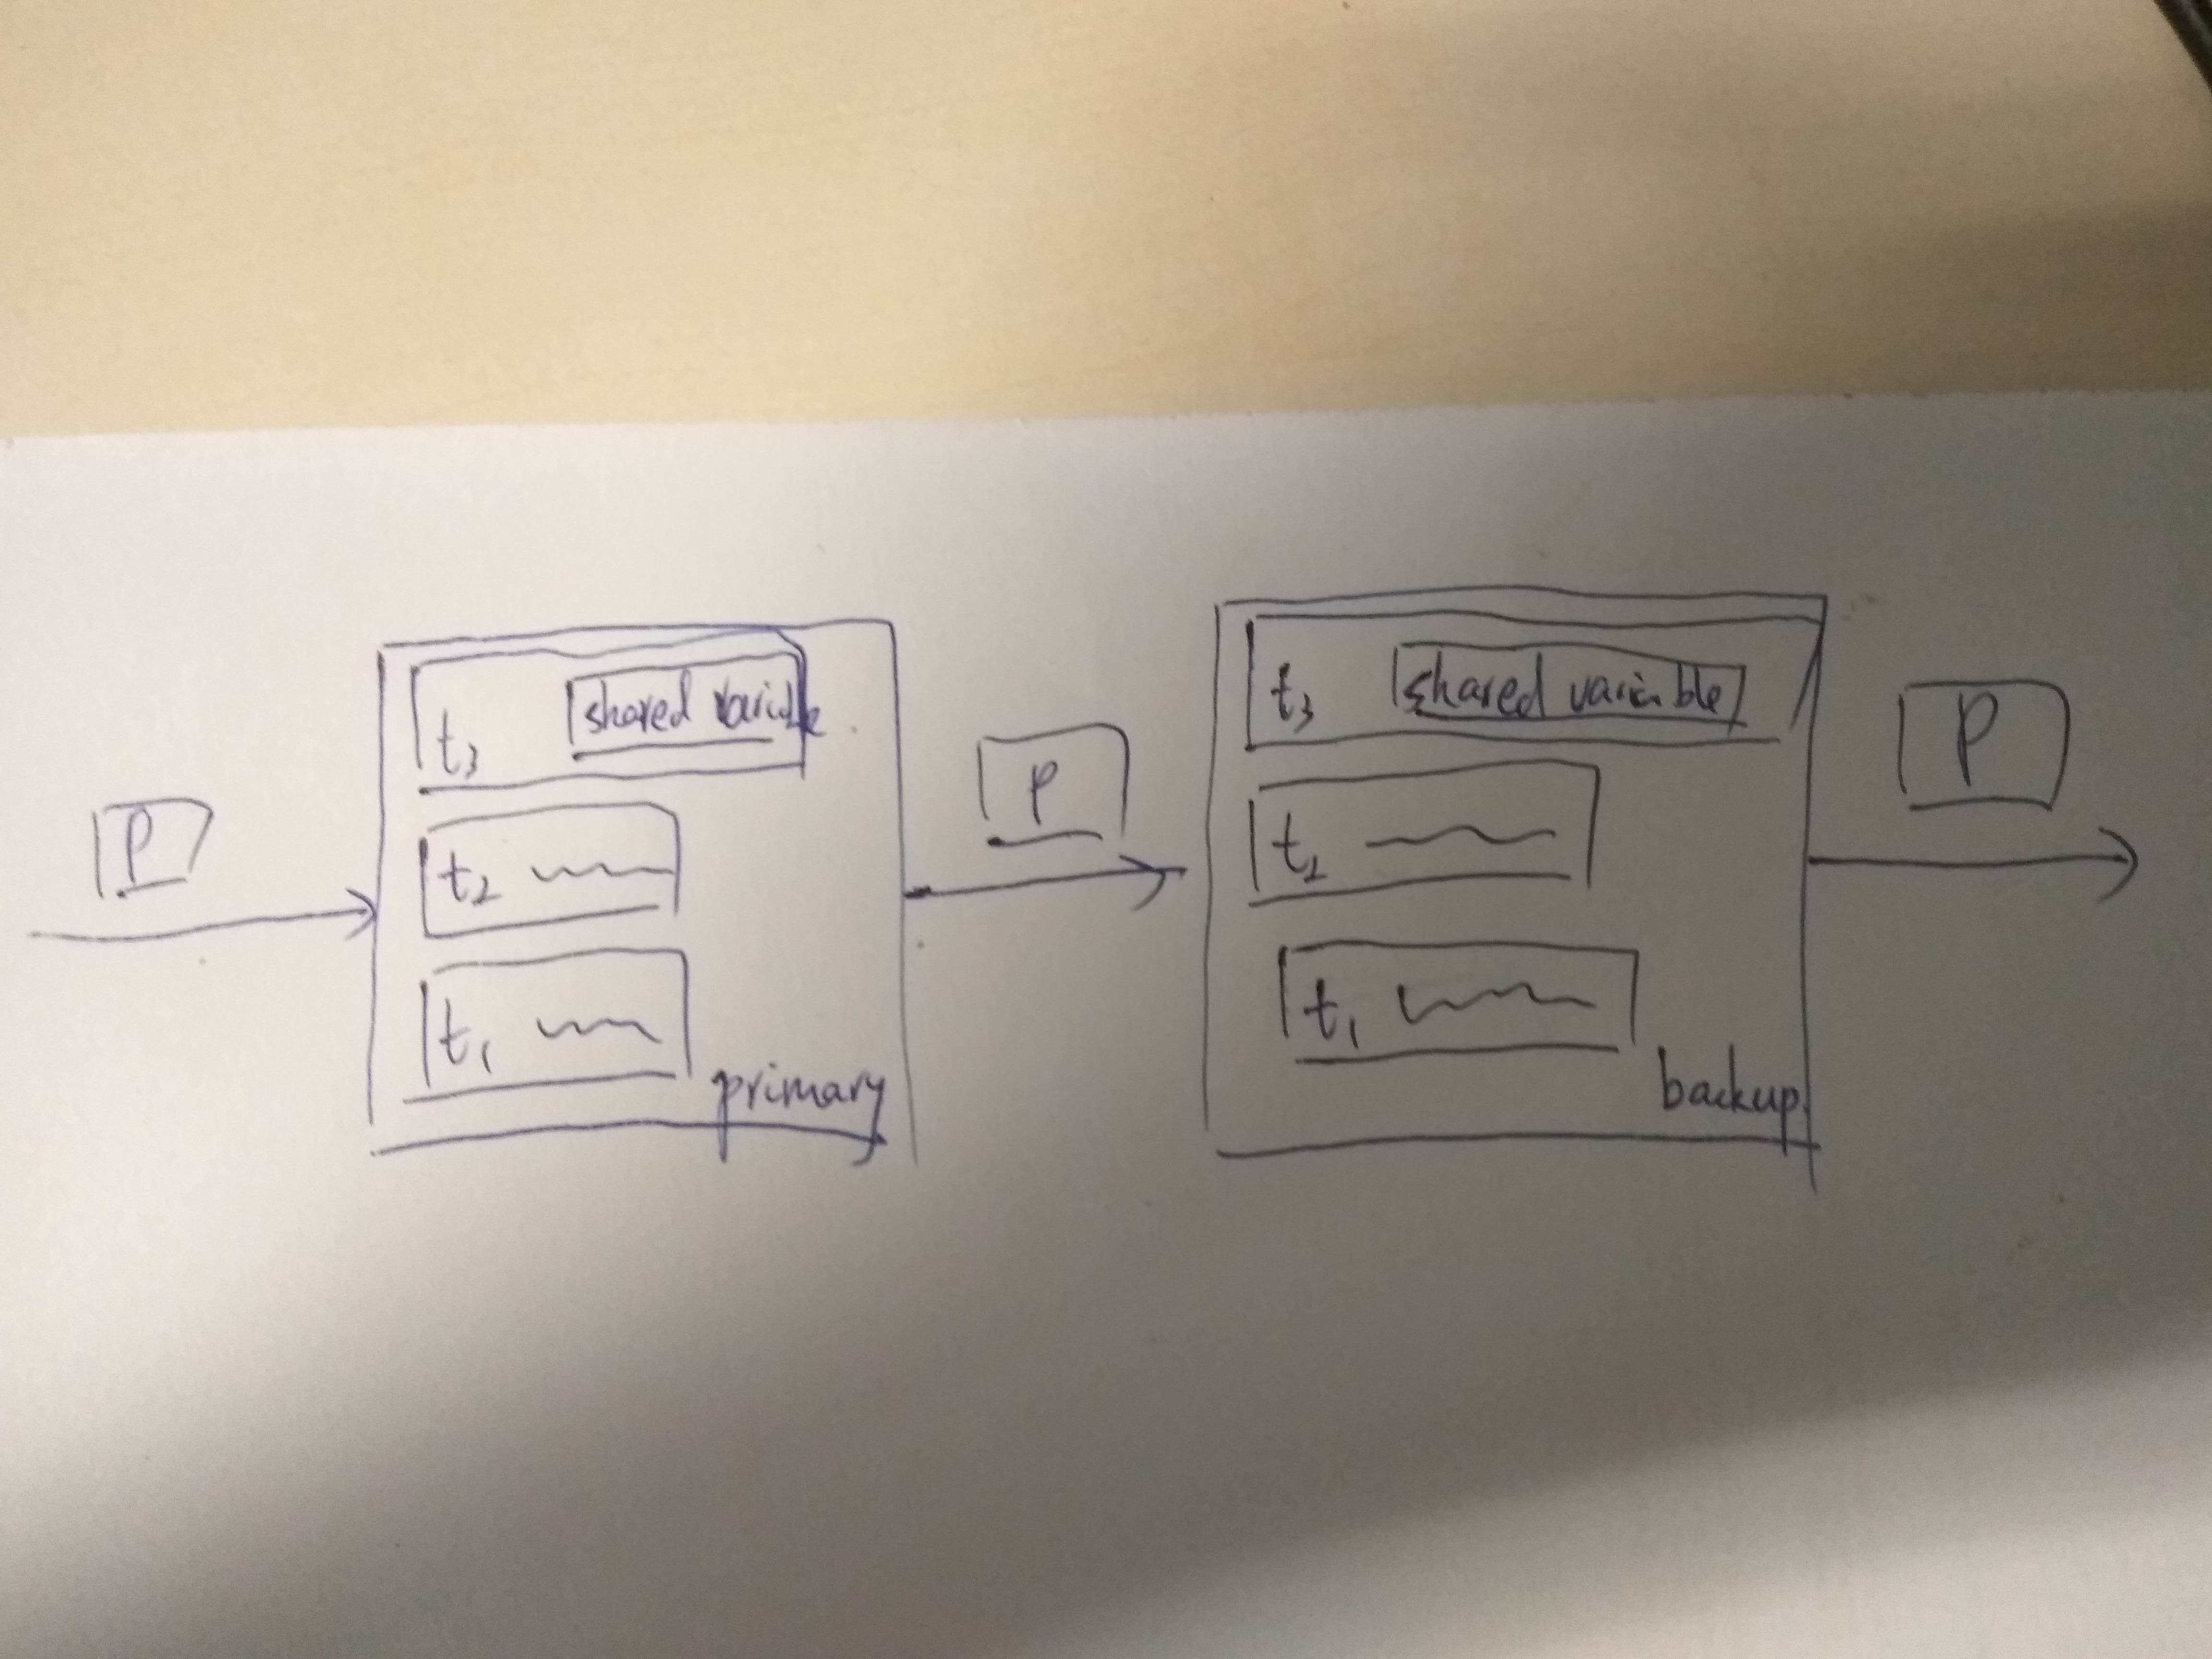 P
t3 shared variable
t2
t1
primary
P
t3 shared variable
t2
t1
backup
P